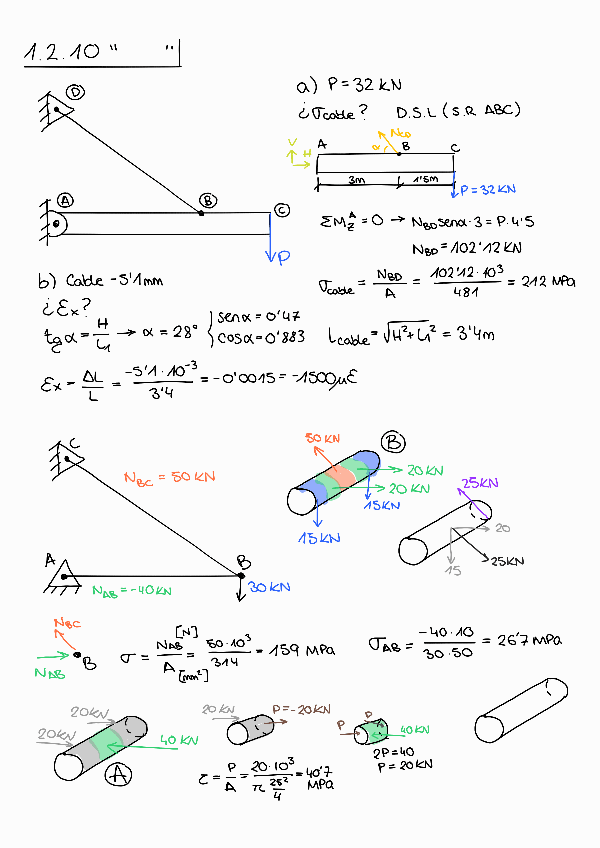 1.2.10 " "
a) P = 32 KN
¿σcable? D.S.L (S.R ABC)
D
A
B
C
P
V
H
A
NBD
α
B
C
3m
1'5m
P = 32 KN
ΣM_Z^A = 0 → NBD senα·3 = P·4'5
NBD = 102'12 KN
σcable = NBD / A = 102'12·10³ / 481 = 212 MPa
b) Cable -5'1mm
¿Ex?
tgα = H / L1 → α = 28° { senα = 0'47
cosα = 0'883
Lcable = √(H² + L1²) = 3'4m
Ex = ΔL / L = -5'1·10⁻³ / 3'4 = -0'0015 = -1500με
C
NBC = 50 KN
A
B
NAB = -40 KN
30 KN
50 KN
B
20 KN
20 KN
15 KN
15 KN
25KN
20
15
25KN
NBC
NAB
B
σ = NAB [N] / A [mm²] = 50·10³ / 314 = 159 MPa
σAB = -40·10 / 30·50 = 26'7 MPa
20KN
20KN
40 KN
A
20 KN
P = -20KN
P
P
40KN
2P = 40
P = 20 KN
τ = P / A = 20·10³ / π 25² / 4 = 40'7 MPa